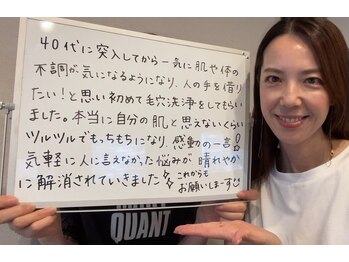 40代に突入してから一気に肌や体の
不調が気になるようになり、人の手を借り
たい！と思い初めて毛穴洗浄をしてもらい
ました。本当に自分の肌と思えないくらい
ツルツルでもっちもちになり、感動の一言!!
気軽に人に言えなかった悩みが晴れやか
に解消されていきました
これからも
お願いしまーす
QUANT